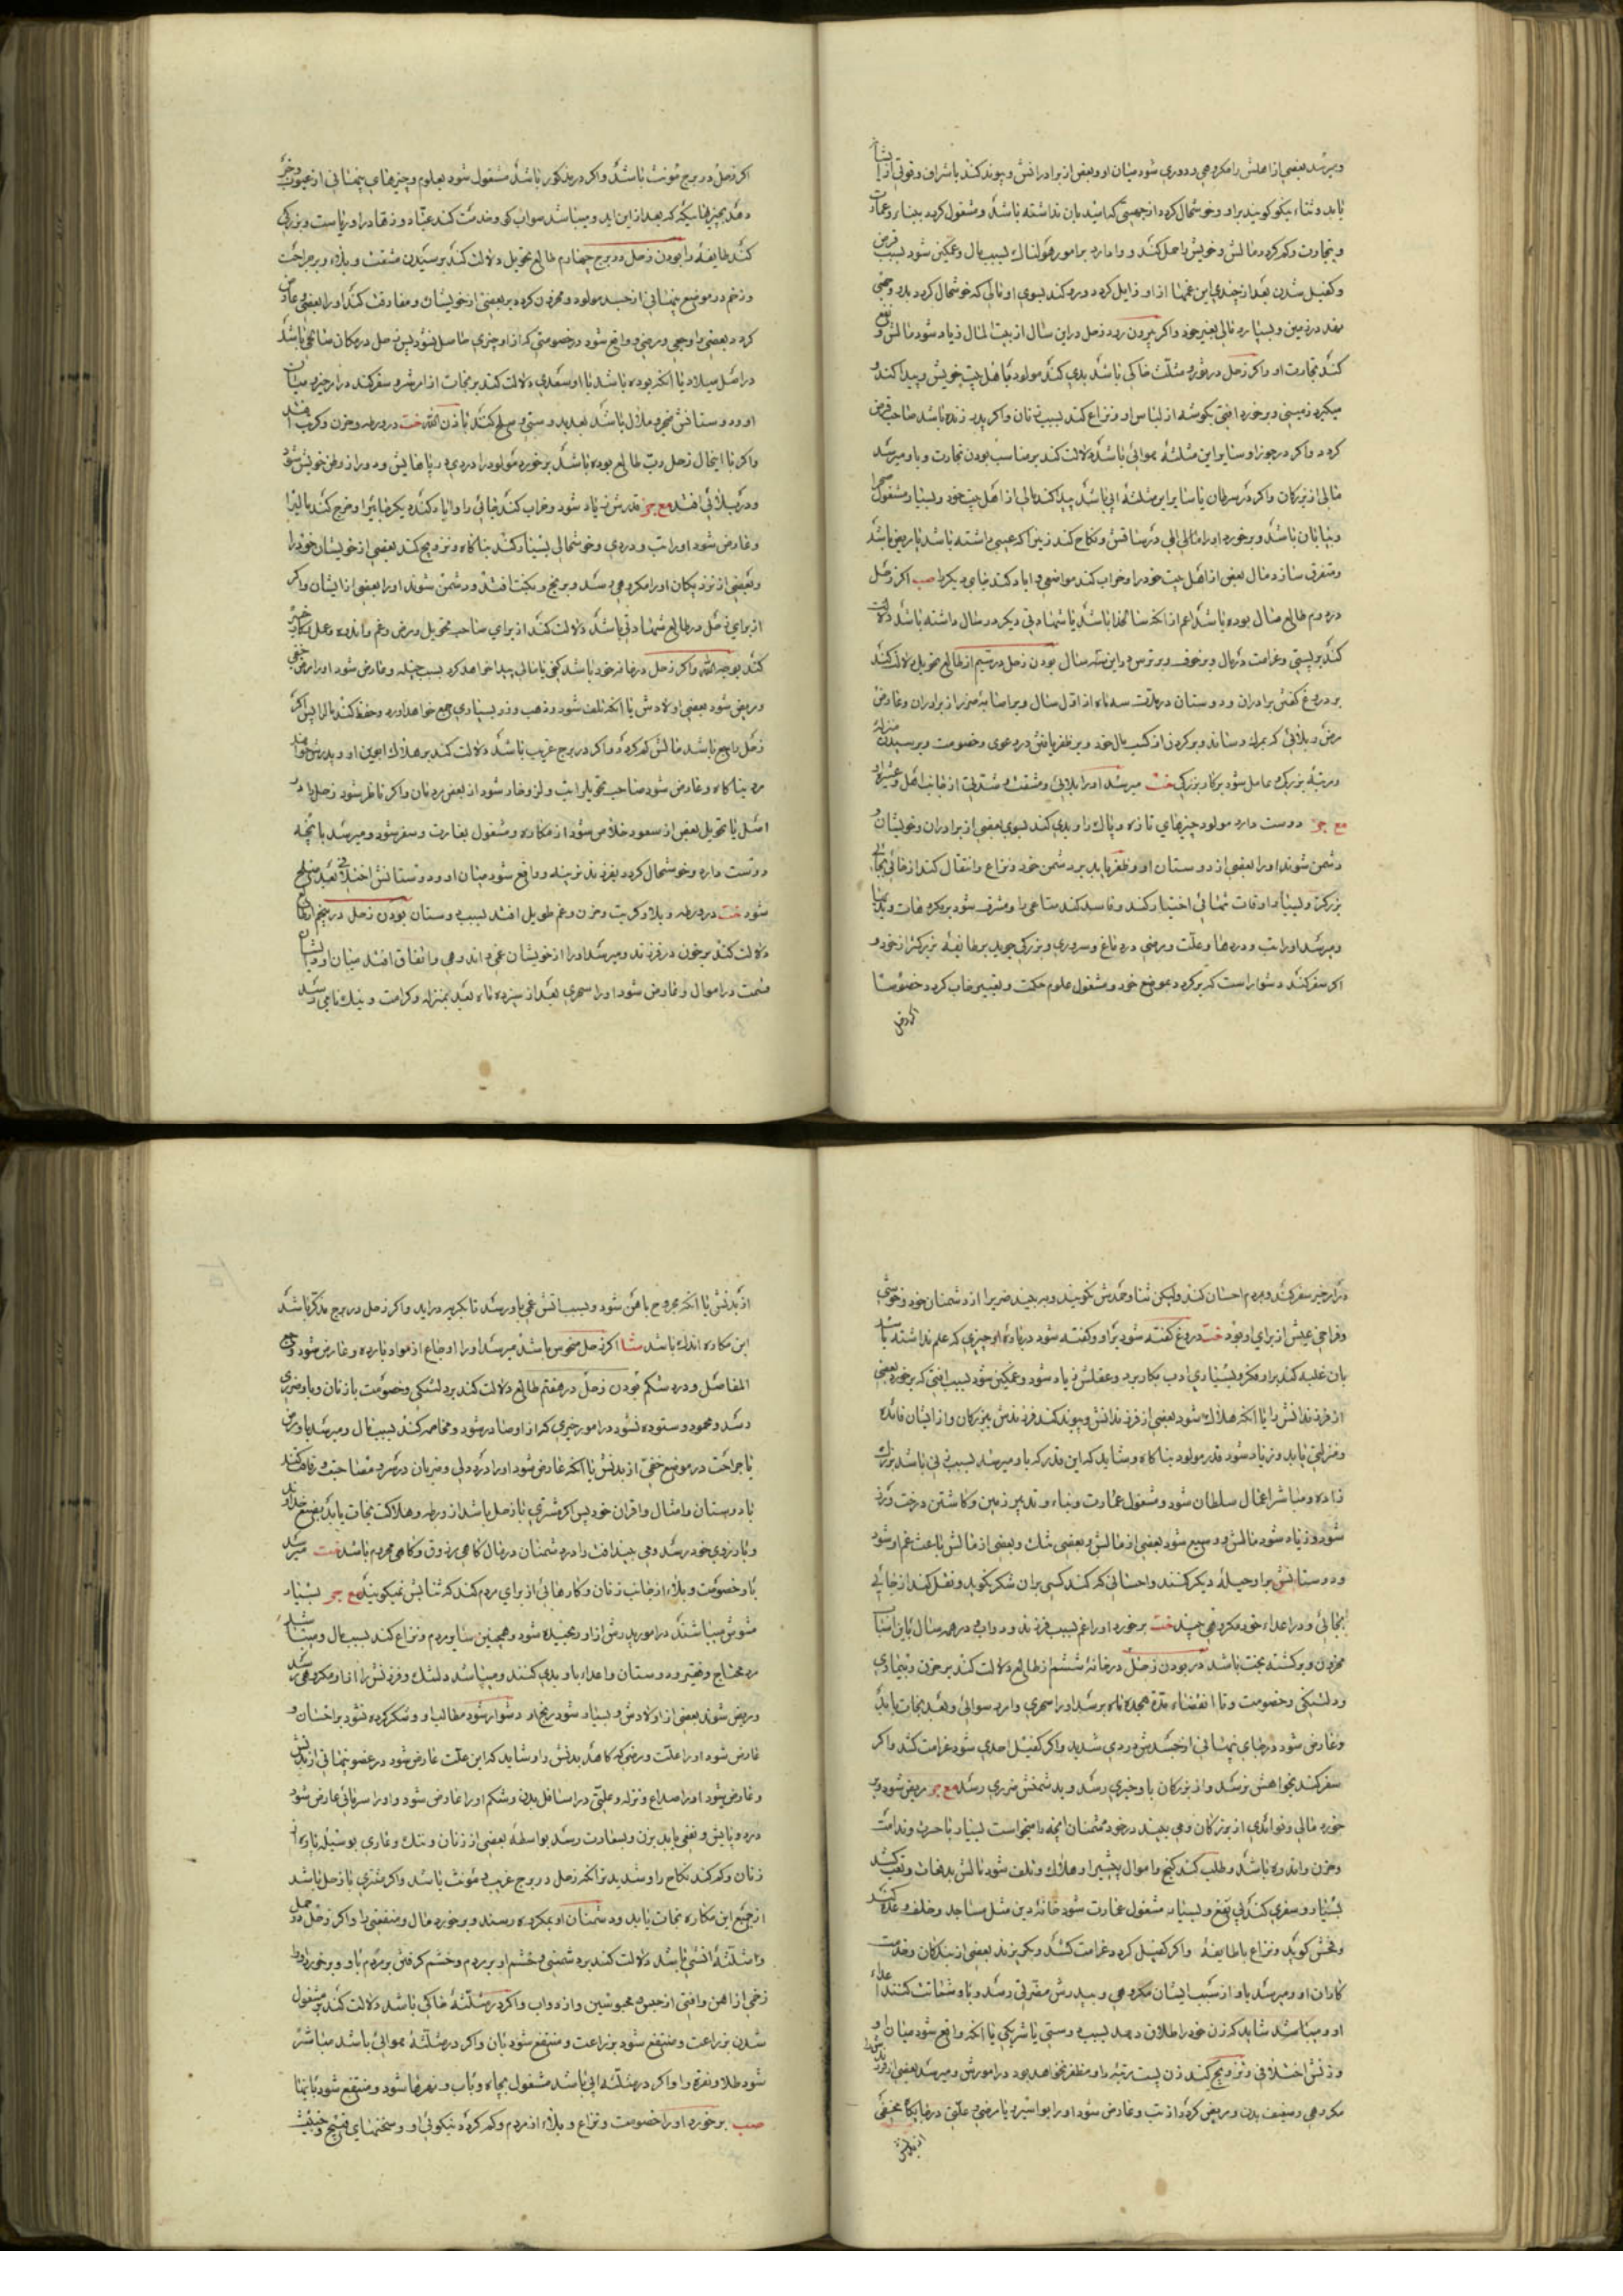 وبرسد بعضی از اهلش را مکروهی و دوری شود میان او و بعضی از برادرانش و پیوند کند باشراف و قوتی از ایشان
یابد و ثناء نیکو کویند براو و خوشحال کردد از جهتی که امید بان نداشته باشد و مشغول کردد ببنا و عمارت
و تجارت و کم کردد مالش و خویش را حمل کند و وا دارد بر امور هولناك بسبب مال و غمکین شود بسبب قرض
و کفیل شدن بعد از چندی این غمها از او زایل کردد و رو کند بسوی او مالی که خوشحال کردد بدو و
در زمین و بسپارد مالی بغیر خود و اکر بیرون رود زحل در این سال از بیت المال زیاد شود مالش و نفع
کند تجارت او و اکر زحل در ثور و مثلث خاکی باشد بدی کند مولود با اهل بیت خویش و پیدا کند
میکیرد زمینی و برخورد افتی بکوشه از لباس او و نزاع کند بسبب زنان و اکر پدر زنده باشد صاحب قرض
کردد و اکر در جوزا و سایر این مثلثه هوائی باشد دلالت کند بر مناسب بودن تجارت و باو میرسد
مالی از بزرکان و اکر در سرطان یا سایر این مثلثه ابی باشد پیدا کند مالی از اهل بیت خود و بسیار مشغول صحرا
و بیابان باشد و برخورد او را مالی و نکاح کند زنی را که عیبی داشته باشد یا مریض باشد
و متفرق سازد مال بعضی از اهل بیت خود را و خراب کند مواضعی و اباد کند جای دیکر را صب اکر زحل
در دوم طالع سال بوده باشد اعم از انکه سالخدا باشد یا شهادتی دیکر در سال داشته باشد دلالت
کند بر پستی و غرامت در مال و بر خوف و بر ترس در این سال بودن زحل در سیم از طالع تحویل دلالت کند
بر دروغ کفتن برادران و دوستان در مدت سه ماه از اول سال و بر اصابه ضرر از برادران و عارض
مرض و بلائی که بمرك رساند و بر کردن از کسب مال خود و بر ظفر یافتن در دعوی و خصومت و بر رسیدن منزله
و مرتبه بزرك و عامل شود بر کار بزرکی خت میرسد او را بلائی و مشقت و شدتی از جانب اهل و عشیره او
مع جر دوست دارد مولود چیزهای تازه و پاك را و بدی کند بسوی بعضی از برادران و خویشان و
دشمن شوند او را بعضی از دوستان او و ظفر یابد بر دشمن خود و نزاع و انتقال کند از جائی بجائی
بزرکتر و بسیار اوقات تنهائی اختیار کند و فاسد کند متاعی را و مشرف شود بر مکروهات و بدیها
و میرسد او را تب و دردها و علت و مرضی در دماغ و سروری و بزرکی جوید بر طایفه بزرکتر از خود و
اکر سفر کند دشوار است که برکردد بموضع خود و مشغول علوم حکمت و تعبیر خواب کردد خصوصا
اکر زحل
اکر زحل در برج مؤنث باشد و اکر در مذکور باشد مشغول شود بعلوم و چیزهای پنهانی از غیوب و خبر
دهد بچیزهائیکه که بعد از این اید و میباشد صواب کو و خدمت کند عبّاد و زهاد را و ریاست و بزرکی
کند طایفه را بودن زحل در برج چهارم طالع تحویل دلالت کند بر رسیدن مشقت و بلاء و بر جراحت
و زخم در موضع پنهانی از جسد مولود و محزون کردد بر بعضی از خویشان و مفارقت کند او را بعضی و عارض
کردد بعضی را وجعی و مرضی و واقع شود در خصومتی که از او چیزی حاصل نشود پس زحل در مکان صالحی باشد
در اصل میلاد یا انکه بوده باشد با او سعدی دلالت کند بر نجات از این شر و سفر کند در امر خیر و میان
او و دوستانش هجر و ملال باشد بعد دوستی و صلح کند باذن الله خت در ورطه و حزن و کرب افتد
و اکر با این حال زحل رب طالع بوده باشد بر خورد مولود را دردی در پاهایش و دور از وطن خویش شود
و در بلائی افتد مع جر قدرش زیاد شود و خراب کند جائی را و اباد کند دیکر جای را و خرج کند مالی را
و عارض شود او را تب و دردی و خوشحالی بسیار کند بناکاه و تزویج کند بعضی از خویشان خود را
و بعضی از نزدیکان او را مکروهی رسد و برنج و نکبت افتد و دشمن شوند او را بعضی از ایشان و اکر
از برای زحل در طالع شهادتی باشد دلالت کند از برای صاحب تحویل و مرض و غم و اندوه و عمل مکاید خیر
کند بوجه الله و اکر زحل در خانه خود باشد کنجی یا مالی پیدا خواهد کرد بسبب حیله و عارض شود او را مرض خفی
و مریض شود بعضی اولادش یا انکه تلف شود و ذهب و زر بسیاری جمع خواهد اورد و حفظ کند مال را پس اکر
زحل راجع باشد مالش کم کردد و اکر در برج غریب باشد دلالت کند بر هلاك ابوین او و پدرش خواهد
مرد بناکاه و عارض شود صاحب تحویل را تب و لرز و خار شود از بعضی مردمان و اکر ناظر شود زحل را در
اصل یا تحویل بعضی از سعود خلاص شود از مکاره و مشغول بعمارت و سفر شود و میرسد بانچه
دوست دارد و خوشحال کردد بفرزند نرینه و واقع شود میان او و دوستانش اختلافی بعد صلح
شود خت در ورطه و بلا و کربت و حزن و غم طویل افتد بسبب دوستان بودن زحل در پنجم از طالع
دلالت کند بر حزن در فرزند و میرسد او را از خویشان غمی و اندوهی و اتفاق افتد میان او و ایشان
قسمت در اموال و عارض شود او را سحری بعد از سیزده ماه بعد بمنزله و کرامت و نیك نامی رسد
در امر خیر سفر کند و بمردم احسان کند ولیکن ثنا و حمدش نکویند و بر بیند ضرر را از دشمنان خود و خوشی
و فراخی عیش از برای او بود خت دروغ کفته شود بر او و کفته شود در باره او چیزی که علم نداشته باشد
بان غلبه کند براو فکر و بسیاری ادب بکار برد و عقلش زیاد شود و غمکین شود بسبب افتی که برخورد بعضی
از فرزندانش را یا انکه هلاك شود بعضی از فرزندانش و پیوند کند فرزندش ببزرکان و از ایشان فائده
و منزلتی یابد و زیاد شود قدر مولود بناکاه و شاید که این قدر که باو میرسد بسبب زنی باشد بزرك
زاده و مباشر اعمال سلطان شود و مشغول عمارت و بناء و تدبیر زمین و کاشتن درخت و زرع
شود و زیاد شود مالش و وسیع شود بعضی از مالش و بعضی تنك و بعضی از مالش باعث غم او شود
و دوستانش براو حیله و مکر کنند و احسانی که کند کسی بران شکر نکوید و نقل کند از جائی
بجائی و در اعداء خود مکروهی بیند خت برخورد او را غم بسبب فرزند و دواب و در همه سال باین اسباب
محزون و برکشته بخت باشد در بودن زحل در خانه ششم از طالع دلالت کند بر حزن و بیماری
و دلتنکی و خصومت و تا انقضاء مدة هجده ماه برسد او را سحری و امر رسوائی و بعد نجات یابد
و عارض شود در جای پنهانی از جسدش دردی شدید و اکر کفیل احدی شود غرامت کشد و اکر
سفر کند بخواهش نرسد و از بزرکان باو خیری رسد و بدشمنش ضرری رسد مع جر مریض شود و بر
خورد مالی و فوائدی از بزرکان و می بیند در خود و دشمنان انچه را میخواست بسیار با حسرت و ندامت
و حزن و اندوه باشد و طلب کند کنج و اموال پیشین را و هلاك و تلف شود مالش بدفعات و تعب کشد
بسیار و سفری کند بی نفع و بسیار مشغول عمارت شود خانه دین مثل مساجد و خلف وعده کند
و فحش کوید و نزاع با طایفه و اکر کفیل کردد غرامت کشد و بکریزند بعضی از بندکان و خدمت
کاران او و میرسد باو از سبب ایشان مکروهی و بپدرش مضرتی رسد و باو شماتت کنند اعداء
او و میباشد شاید که زن خود را طلاق دهد بسبب دوستی یا شریکی یا انکه واقع شود میان او
و زنش اختلافی و تزویج کند زن پست مرتبه را و مظفر نخواهد بود در امورش و میرسد بعضی از فرزندش را
مکروهی و ضعیف بدن و مریض کردد از تب و عارض شود او را بواسیر یا مرضی و علتی در جایکاه مخفی
از بدنش
از بدنش یا انکه مجروح باهن شود و بسبب اتش غمی باو رسد تا بکریه دراید و اکر زحل در برج مذکر باشد
این مکاره اندك باشد شا اکر زحل منحوس باشد میرسد او را اوجاع از مواد بارده و عارض شود وجع
المفاصل و درد شکم بودن زحل در هفتم طالع دلالت کند بر دلتنکی و خصومت با زنان و باو ضرری
رسد و محمود و ستوده نشود در امور خیری که از او صادر شود و مخاصمه کند بسبب مال و میرسد باو مرض
یا جراحت در موضع خفی از بدنش یا انکه عارض شود او را درد دلی و ضربان در سر و مصاحبت و رفاقت کند
با دوستان و امثال و اقران خود پس اکر مشتری با زحل باشد از ورطه و هلاکت نجات یابد بعضی خداوند
و بارزوی خود برسد و می بیند افت را در دشمنان در مال کاهی مرزوق و کاهی محروم باشد خت میرسد
باو خصومت و بلاء از جانب زنان و کارهائی از برای مردم کند که ثنایش نمیکویند مع جر بسیار
مشوش میباشد در امور پدرش از او رنجیده شود و همچنین سایر مردم و نزاع کند بسبب مال و میباشد
مرد محتاج و فقیر و دوستان و اعداء باو بدی کنند و میباشد دلتنك و فرزندش را از او مکروهی رسد
و مریض شوند بعضی از اولادش و بسیار شود رنج او و دشوار شود مطالب او و شکر کرده نشود بر احسان او
عارض شود او را علت و مرضی که کاهد بدنش را و شاید که این علت عارض شود در عضو پنهانی از بدنش
و عارض شود او را صداع و نزله و علتی در اسافل بدن و شکم او را عارض شود و او را سرمائی عارض شود
درد و پایش و نفعی یابد بزن و بسعادت رسد بواسطه بعضی از زنان و ننك و عاری بوسیله پاره از
زنان و کم کند نکاح را و شدید تر انکه زحل در برج غریب و مؤنث باشد و اکر مشتری با زحل باشد
از جمیع این مکاره نجات یابد و دشمنان او بمکروه رسند و برخورد مال و منفعتی را و اکر زحل در حمل
و مثلثه اتشی باشد دلالت کند بر دشمنی و خشم او بر مردم و خشم کرفتن مردم باو و برخورد او را
زخمی از اهن و افتی از جیش و محبوسین و از دواب و اکر در مثلثه خاکی باشد دلالت کند بر مشغول
شدن بزراعت و منتفع شود بزراعت و منتفع شود بان و اکر در مثلثه هوائی باشد مباشر
شود طلا و نقره را و اکر در مثلثه ابی باشد مشغول بچاه و باب و نهرها شود و منتفع شود بانها
صب برخورد او را خصومت و نزاع و بلاء از مردم و کم کردد نیکوئی او و سخنهای قبیح و خبیث